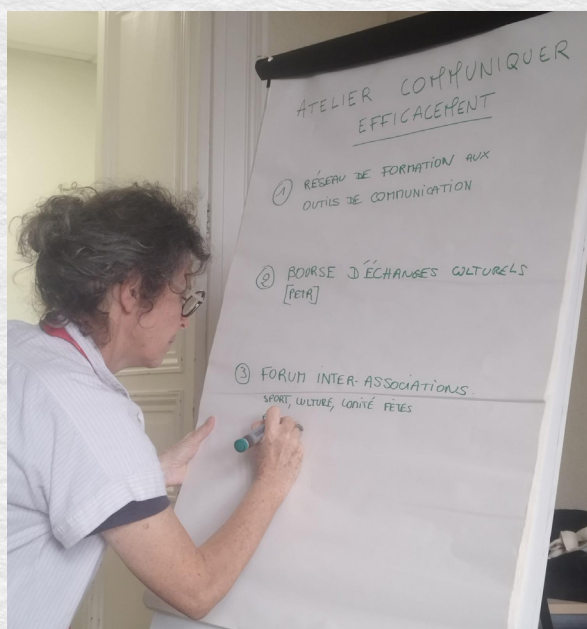 ATELIER COMMUNIQUER
EFFICACEMENT
1 RÉSEAU DE FORMATION AUX
OUTILS DE COMMUNICATION
2 BOURSE D'ÉCHANGES CULTURELS
[PETR]
3 FORUM INTER-ASSOCIATIONS
SPORT, CULTURE, COMITÉ FÊTES